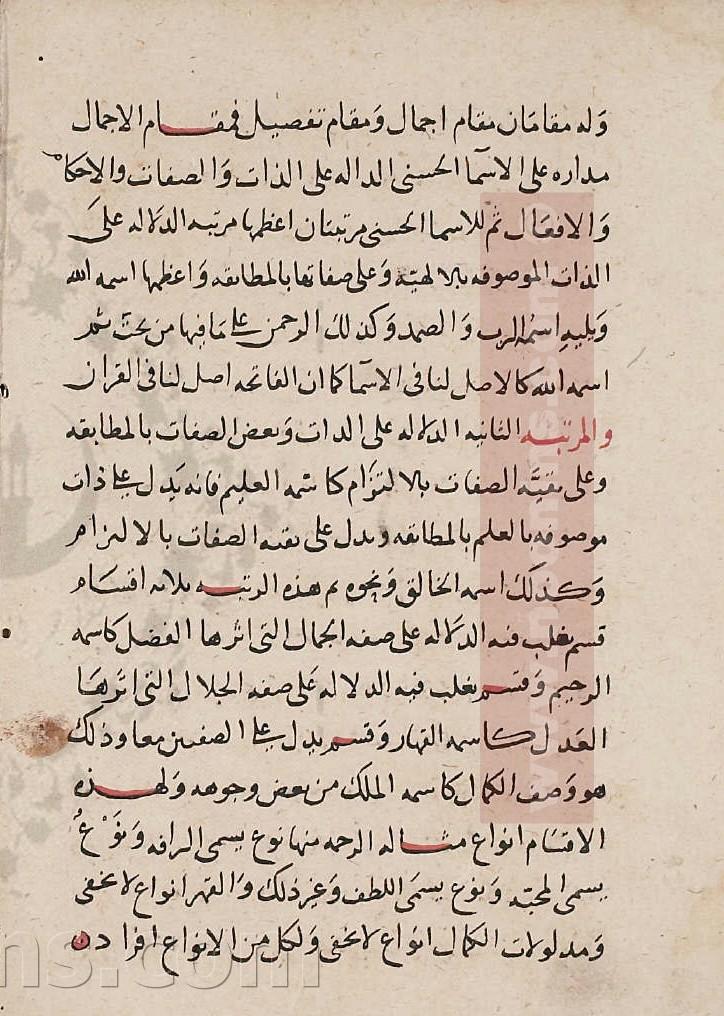 وله مقامان مقام اجمال ومقام تفصيل فمقام الاجمال
مداره على الاسما الحسنى الداله على الذات والصفات والاحكام
والافعال ثم للاسما الحسنى مرتبتان اعظمها مرتبه الدلاله على
الذات الموصوفه بالالهيه وعلى صفاتها بالمطابقه واعظمها اسمه الله
ويليه اسمه الرب والصمد وكذلك الرحمن على ما فيها من بحث ثم
اسمه الله كالاصل لنا فى الاسما كما ان الفاتحه اصل لنا فى القران
والمرتبه الثانيه الدلاله على الذات وبعض الصفات بالمطابقه
وعلى بقيه الصفات بالالتزام كاسمه العليم فانه يدل على ذات
موصوفه بالعلم بالمطابقه ويدل على بقيه الصفات بالالتزام
وكذلك اسمه الخالق ونحوه ثم هذه الرتبه ثلاثه اقسام
قسم يغلب فيه الدلاله على صفه الجمال التى اثرها الفضل كاسمه
الرحيم وقسم يغلب فيه الدلاله على صفه الجلال التى اثرها
العدل كاسمه القهار وقسم يدل على الصفتين معا وذلك
هو وصف الكمال كاسمه الملك من بعض وجوهه ولهذه
الاقسام انواع مثاله الرحمه منها نوع يسمى الرافه ونوع
يسمى المحبه ونوع يسمى اللطف وغير ذلك والقهر انواع لا تخفى
ومدلولات الكمال انواع لا تخفى ولكل من الانواع افراد ه
ns.com